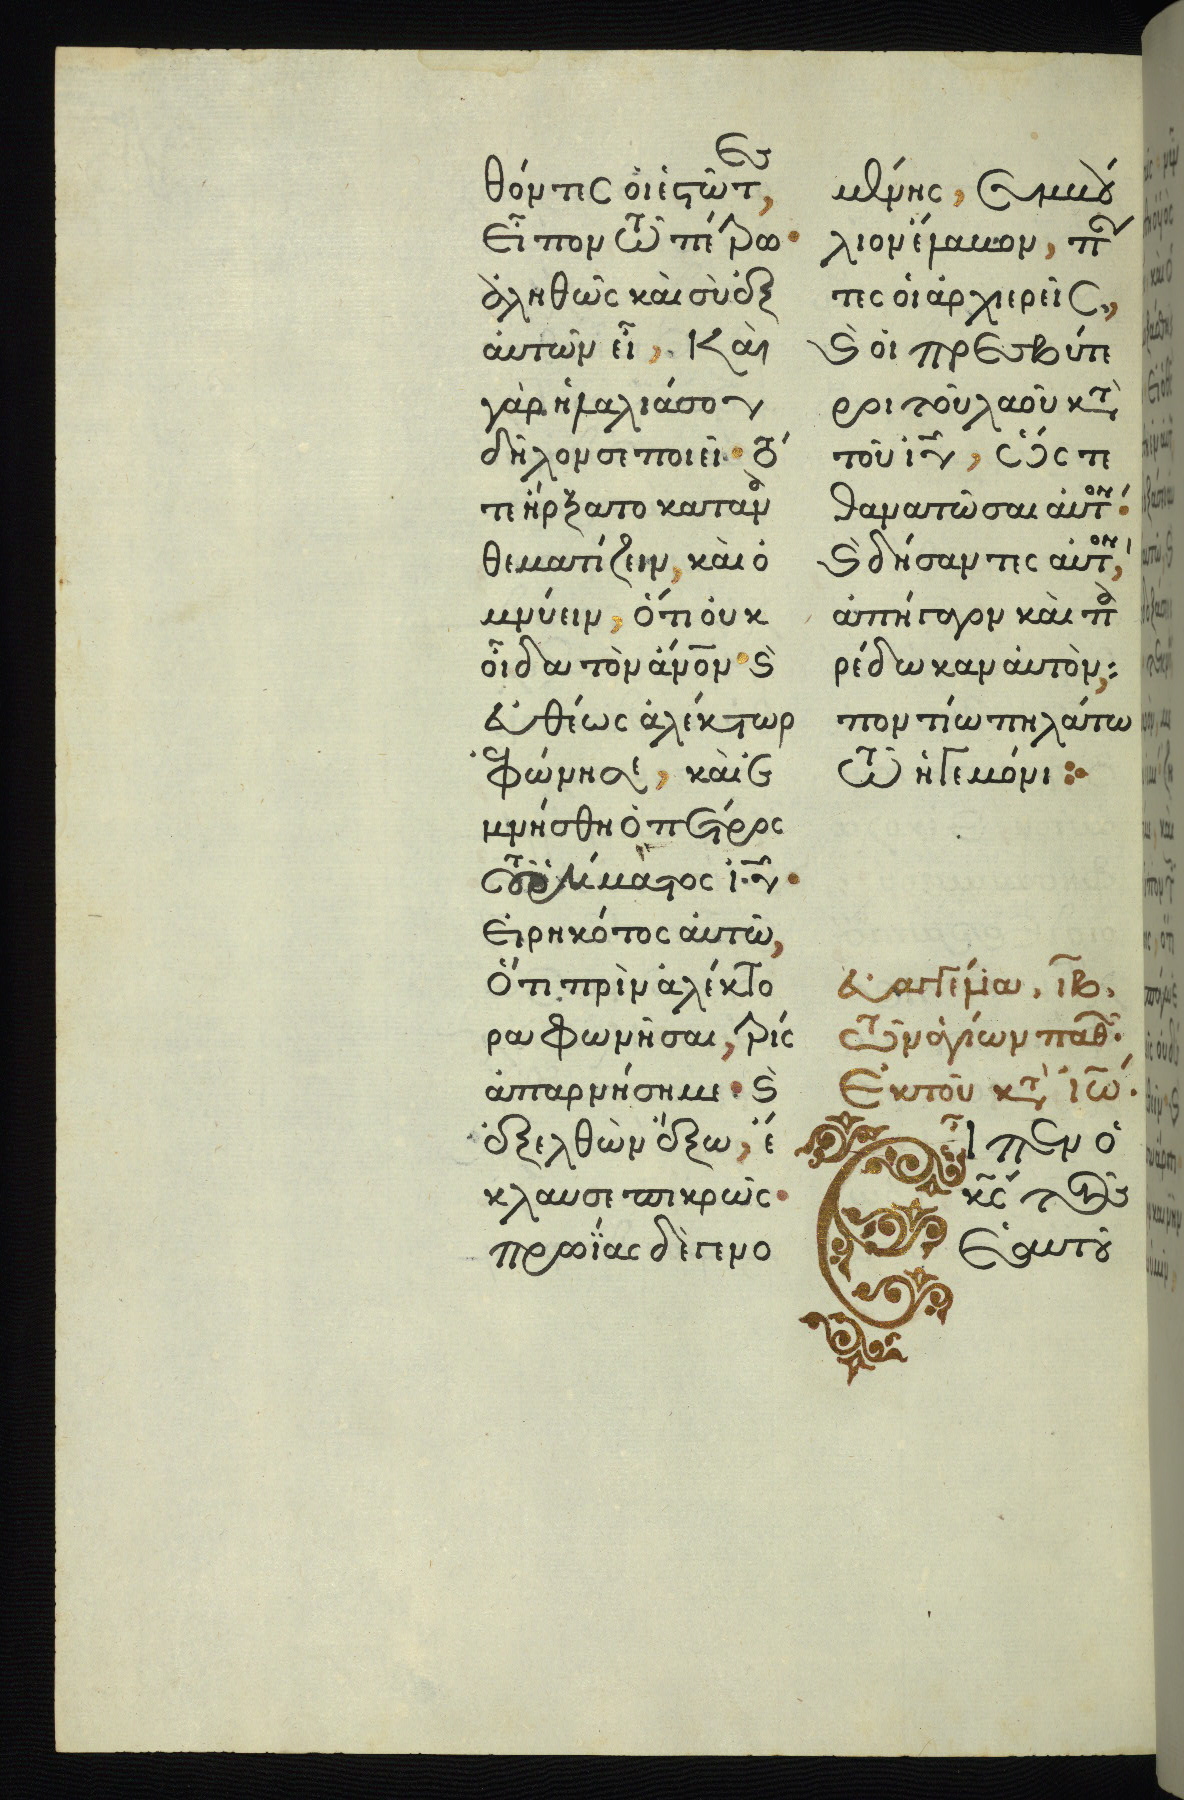 θόντες οἱ ἑστῶτες,
Εἶπον τῶ πέτρω·
ἀληθῶς καὶ σὺ ἐξ
αὐτῶν εἶ, Καὶ
γὰρ ἡ λαλιά σου
δῆλον σε ποιεῖ· τό
τε ἤρξατο καταθ
θεματίζειν, καὶ ὀ
μνύειν, ὅτι οὐκ
οἶδα τὸν ἄνον· καὶ
εὐθέως ἀλέκτωρ
ἐφώνησε, καὶ ἐ
μνήσθη ὁ πέτρος
τοῦ ῥήματος ἰῦ·
Εἰρηκότος αὐτῶ,
Ὅτι πρὶν ἀλέκτο
ρα φωνῆσαι, τρίς
ἀπαρνήση με· καὶ
ἐξελθὼν ἔξω, ἔ
κλαυσε πικρῶς·
πρωΐας δὲ γενο
μένης, συμβού
λιον ἔλαβον, πάν
τες οἱ ἀρχιερεῖς,
καὶ οἱ πρεσβύτε
ροι τοῦ λαοῦ κατὰ
τοῦ ἰῦ, ὥστε
θανατῶσαι αὐτόν·
καὶ δήσαντες αὐτόν,
ἀπήγαγον καὶ πα
ρέδωκαν αὐτὸν,
ποντίω πηλάτω
τῶ ἡγεμόνι
εὐαγγέλια, ιβ,
τῶν ἁγίων παθ·
Ἐκ τοῦ κατὰ ἰω·
Εἶπεν ὁ
κς τοῖς
ἑαυτοῦ